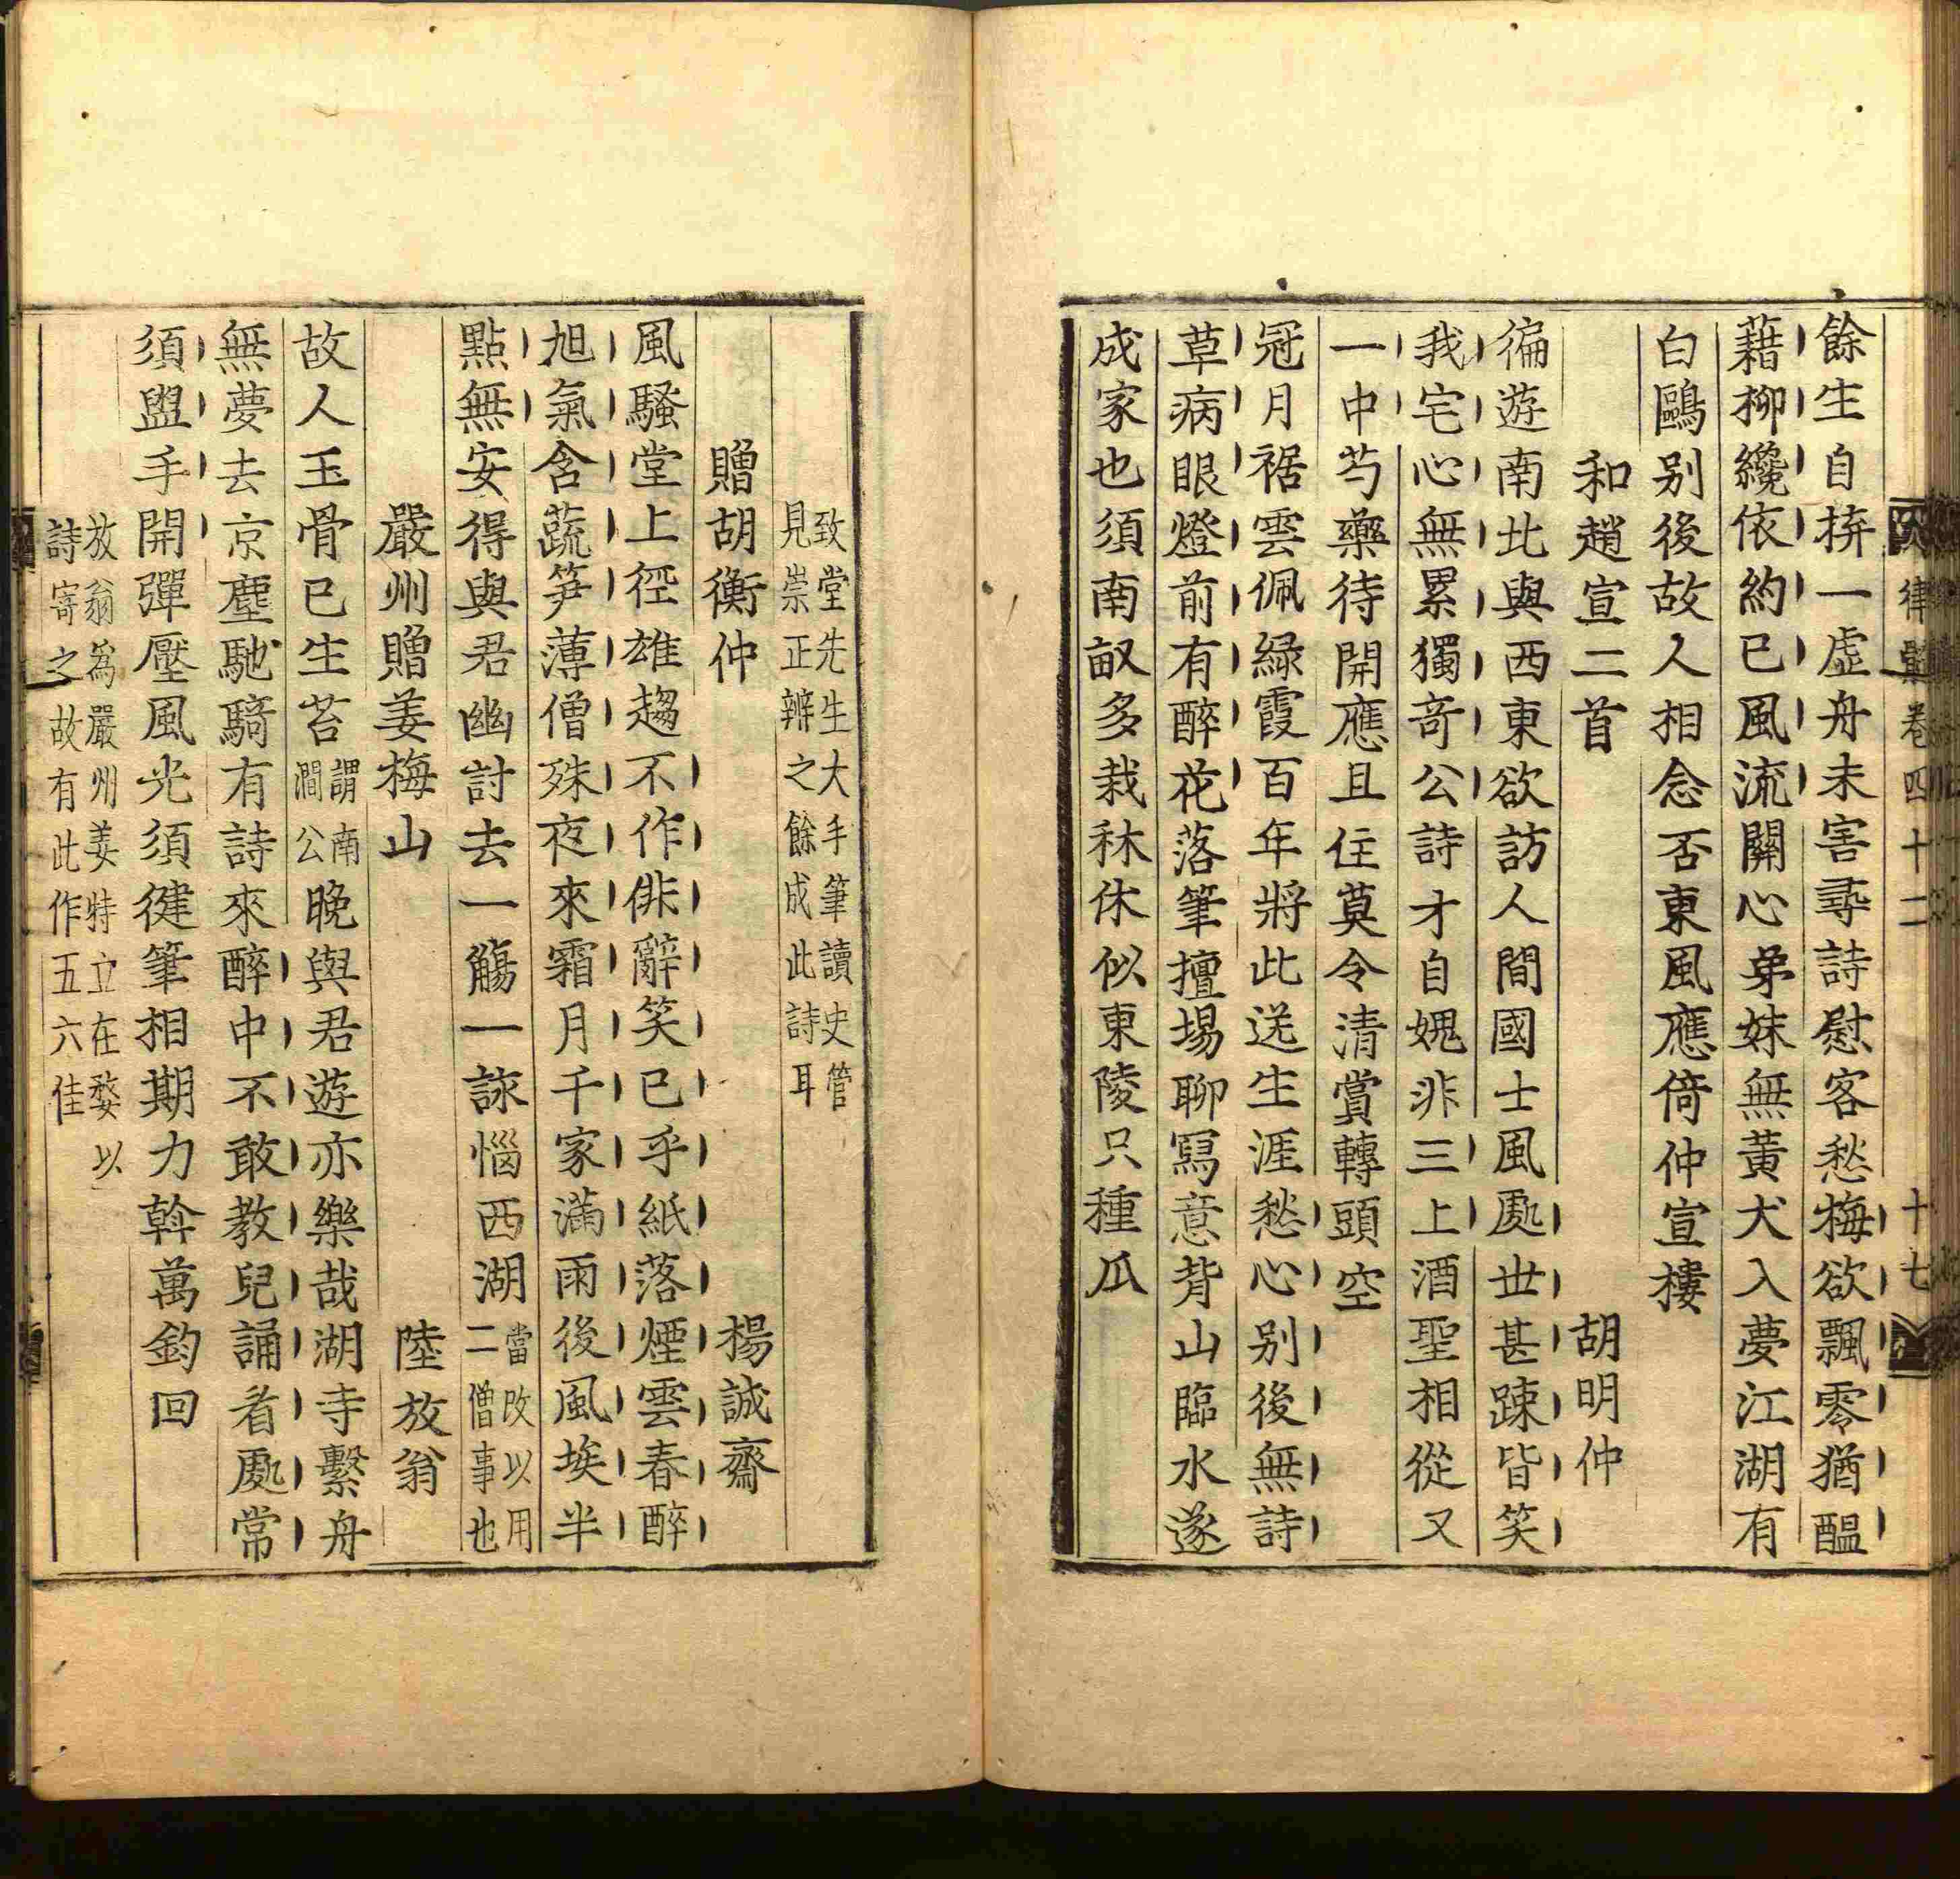 律髓卷四十二 十七
餘生自拚一虛舟未害尋詩慰客愁梅欲飄零猶醞
藉柳纔依約已風流關心弟妹無黃犬入夢江湖有
白鷗别後故人相念否東風應倚仲宣樓
和趙宣二首 胡明仲
徧遊南北與西東欲訪人間國士風處世甚踈皆笑
我宅心無累獨竒公詩才自媿非三上酒聖相從又
一中芍藥待開應且住莫令清賞轉頭空
冠月裾雲佩綠霞百年將此送生涯愁心别後無詩
草病眼燈前有醉花落筆擅場聊寫意背山臨水遂
成家也須南畝多栽秫休似東陵只種瓜
致堂先生大手筆讀史管
見崇正辨之餘成此詩耳
贈胡衡仲 楊誠齋
風騷堂上徑雄趨不作俳辭笑已乎紙落煙雲春醉
旭氣含蔬笋薄僧殊夜來霜月千家滿雨後風埃半
點無安得與君幽討去一觴一詠惱西湖當改以用
二僧事也
嚴州贈姜梅山 陸放翁
故人玉骨已生苔謂南
澗公晚與君遊亦樂哉湖寺繫舟
無夢去京塵馳騎有詩來醉中不敢教兒誦看處常
須盥手開彈壓風光須健筆相期力斡萬鈞回
放翁為嚴州姜特立在婺以
詩寄之故有此作五六佳